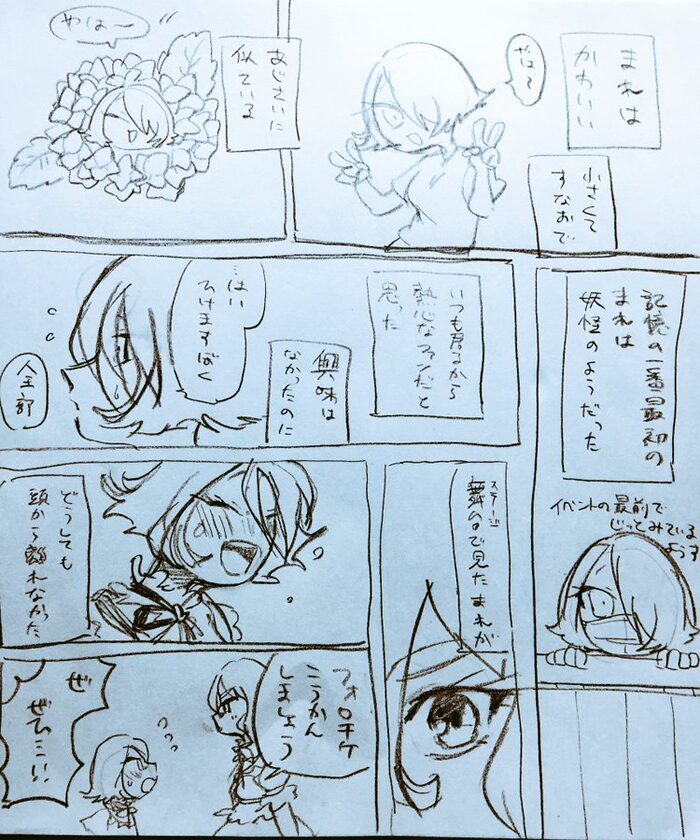 まれは
かわいい
やは〜
小さくて
すなおで
あじさいに
似ている
やは〜
記憶の一番最初の
まれは
妖怪のようだった
イベントの最前で
じっとみている
いつも居るから
熱心なファンだと
思った
興味は
なかったのに
…はい
全部
ステージ
で見たまれが
どうしても
頭から離れなかった
フォロチケ
こうかん
しましょう
ぜ